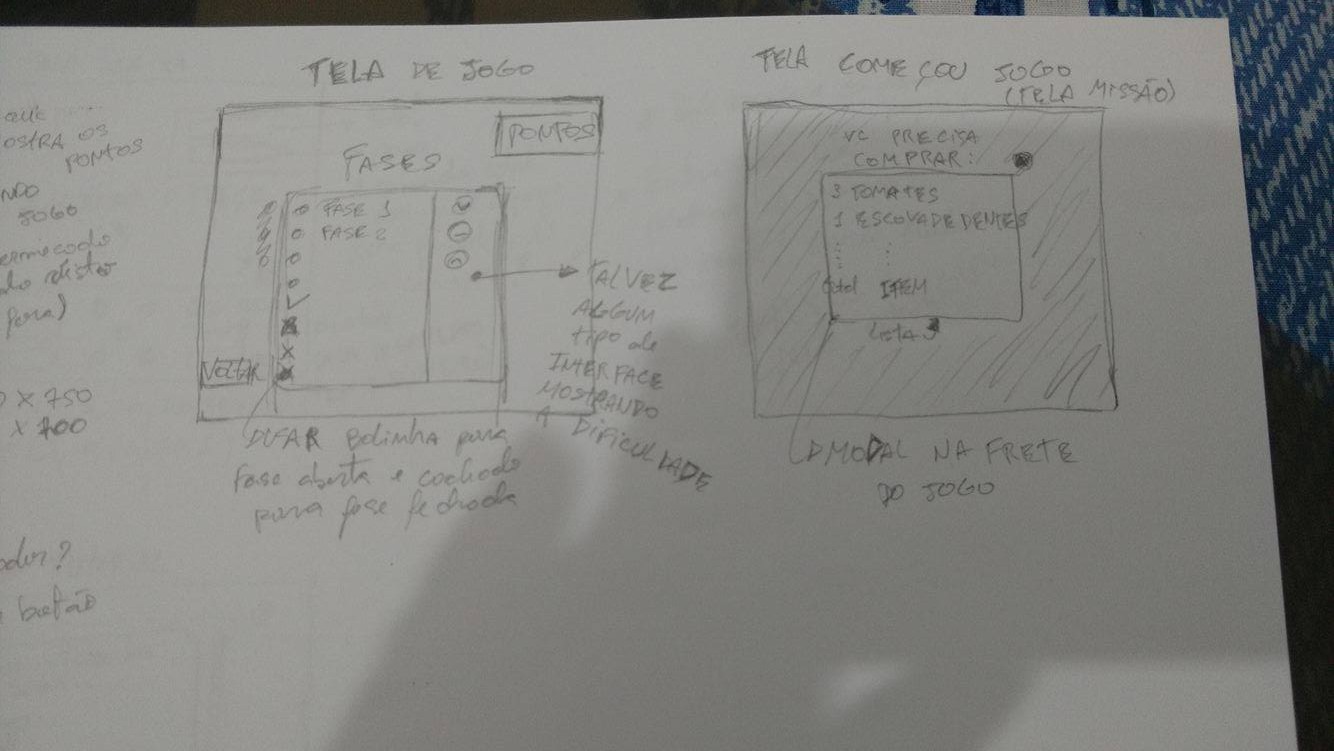 que ...
OSTRA OS
PONTOS
NDO
JOGO
fora)
X 750
X 700
botão
TELA DE JOGO
PONTOS
FASES
FASE 1
FASE 2
VOLTAR
TALVEZ
ALGGUM
tipo de
INTERFACE
MOSTRANDO
A DIFICULDADE
Bolinha para
fase aberta e
para fase fechada
TELA COMEÇOU JOGO
(TELA MISSÃO)
VC PRECISA
COMPRAR:
3 TOMATES
1 ESCOVA DE DENTES
ITEM
MODAL NA FRETE
DO JOGO